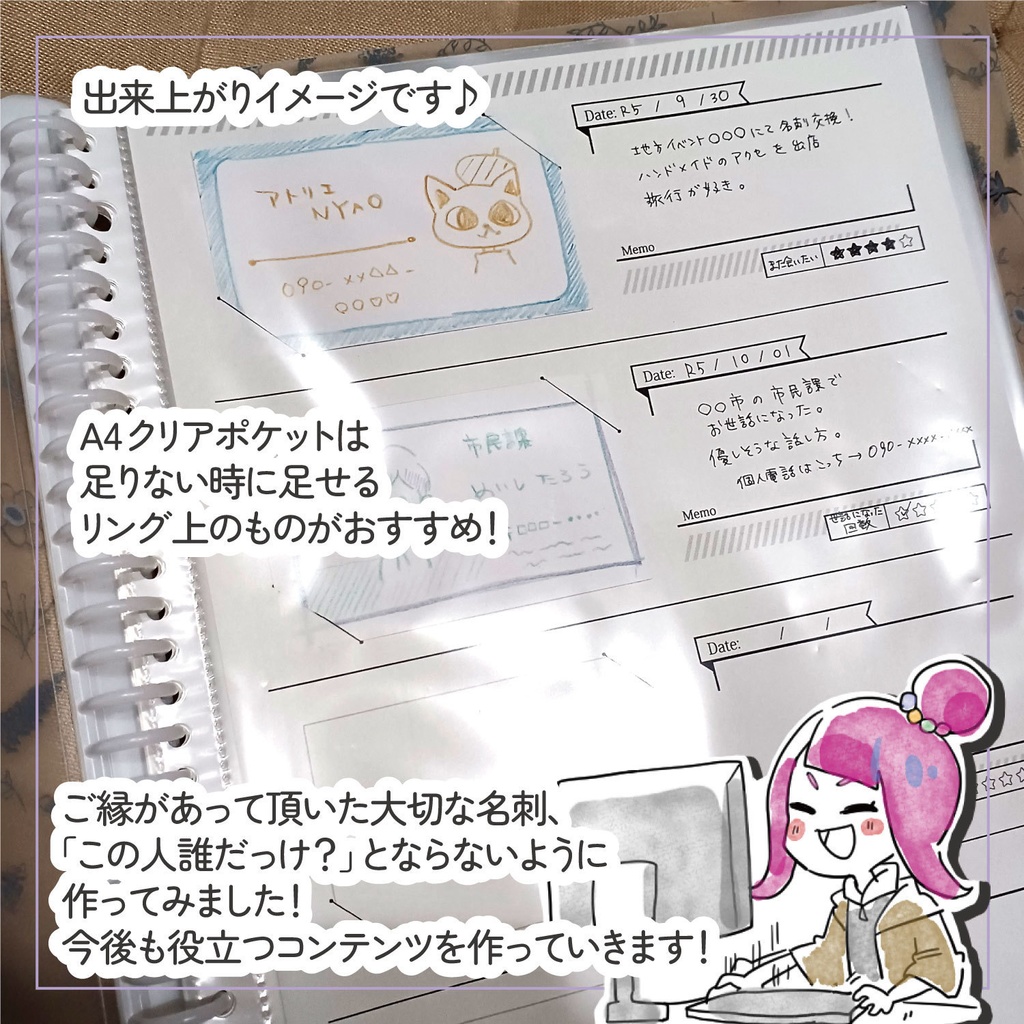 出来上がりイメージです♪
Date: R5 / 9 / 30
地方イベント○○○にて名刺交換！
ハンドメイドのアクセを出店
旅行が好き。
Memo
また会いたい ★★★★☆
アトリエ
NYAO
090-xx△△-
○○♡♡
Date: R5 / 10 / 01
○○市の市民課で
お世話になった。
優しそうな話し方。
個人電話はこっち→090-xxxx-xxxx
Memo
世話になった
回数 ☆☆
市民課
めいし たろう
A4クリアポケットは
足りない時に足せる
リング上のものがおすすめ！
Date: / /
☆☆☆
ご縁があって頂いた大切な名刺、
「この人誰だっけ？」とならないように
作ってみました！
今後も役立つコンテンツを作っていきます！